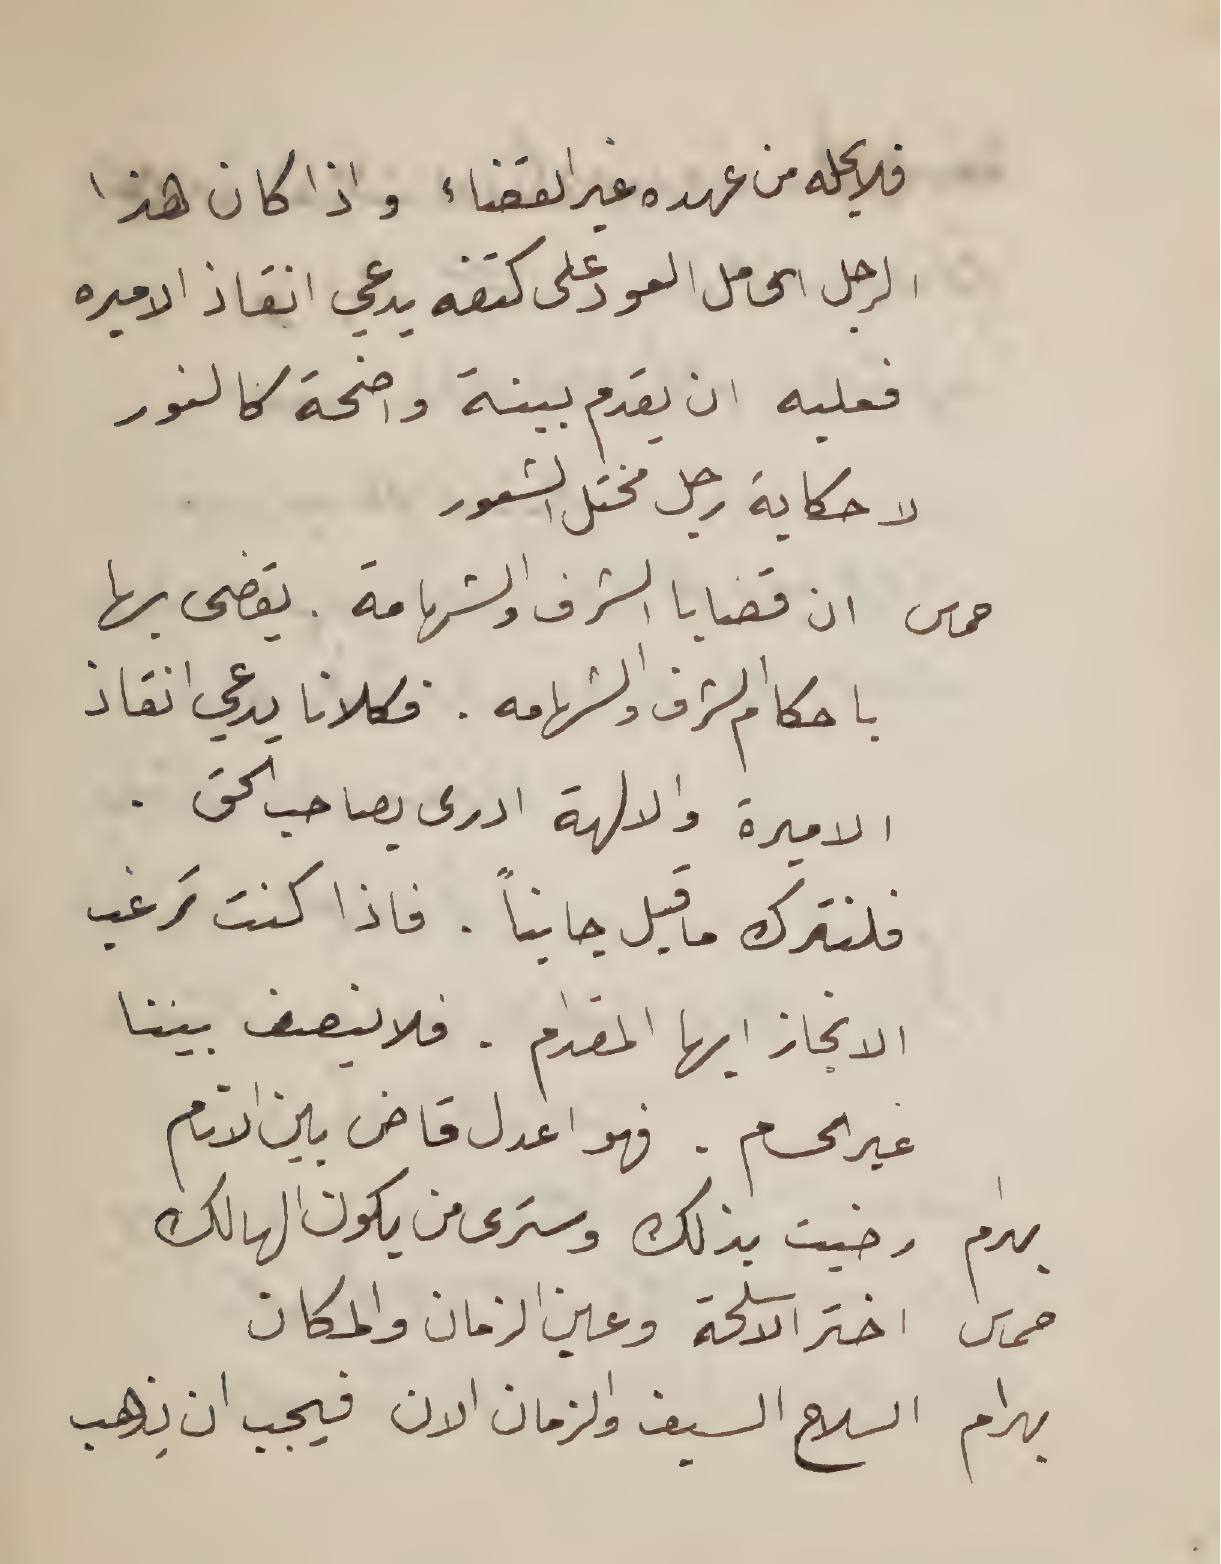 فلا يحله من عهده غير القضاء واذا كان هذا
الرجل الحامل العود على كتفه يدعي انقاذ الاميره
فعليه ان يقدم بينة واضحة كالنور
لا حكاية رجل مختل الشعور
حماس ان قضايا الشرف والشهامة . يقضى بها
باحكام الشرف والشهامه . فكلانا يدعي انقاذ
الاميرة والالهة ادرى بصاحب الحق .
فلنترك ماقيل جانباً . فاذا كنت ترغب
الانجاز ايها المقدام . فلا ينصف بيننا
غير الحسام . فهو اعدل قاض بين الانام
بهرام رضيت بذلك وسترى من يكون الهالك
حماس اختر الاسلحة وعين الزمان والمكان
بهرام السلاح السيف والزمان الان فيجب ان يذهب